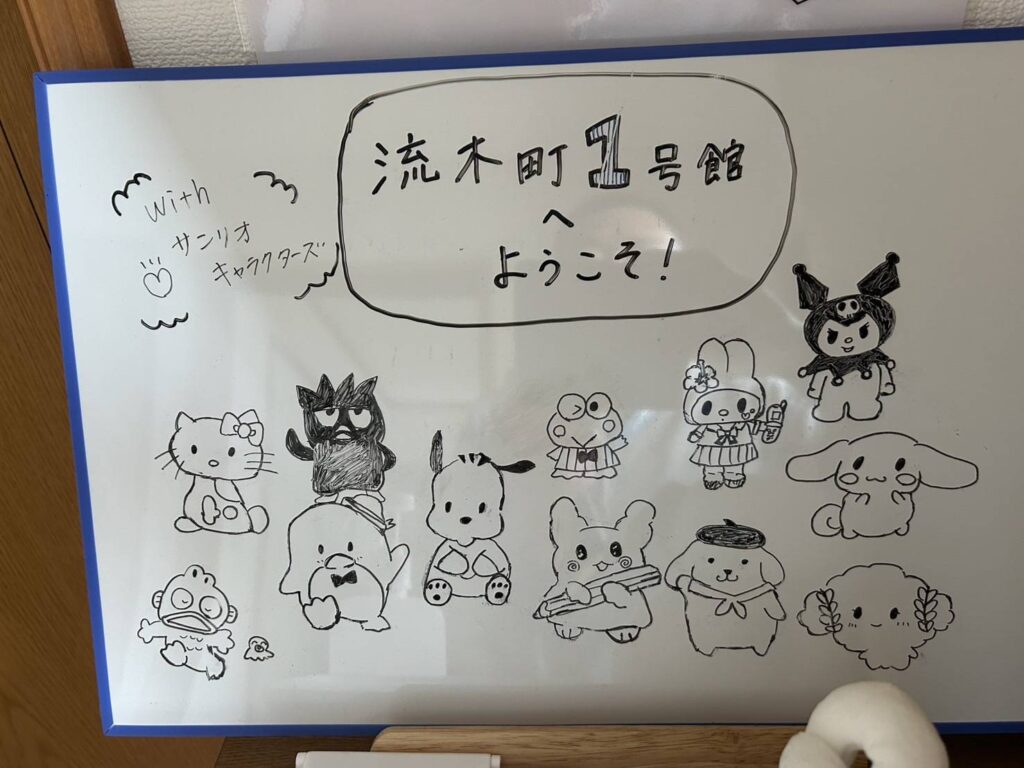 流木町1号館
へ
ようこそ!
with
サンリオ
キャラクターズ